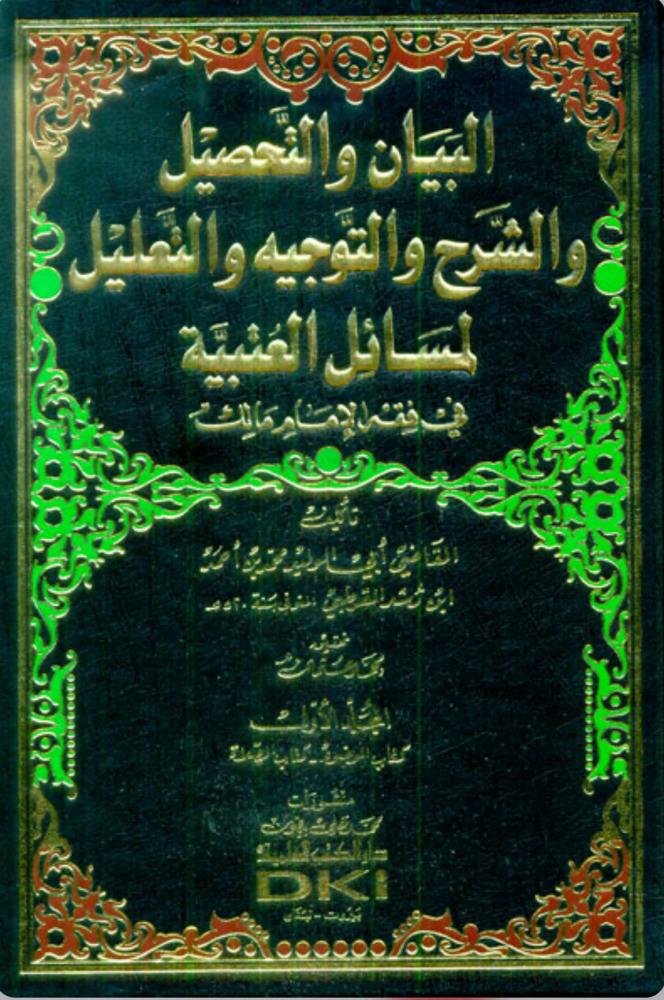 البَيَان والتَّحصيْل
والشَّرح والتَّوجيه والتَّعليْل
لمسَائِل العُتبيَّة
في فقه الإمام مالك
تأليف
القاضي أبي الوليد محمد بن أحمد
ابن رشد القرطبي المتوفى سنة ٥٢٠هـ
تحقيق
المجلد الأول
كتاب الوضوء - كتاب الصلاة
منشورات
محمد علي بيضون
دار الكتب العلمية
DKi
بيروت - لبنان